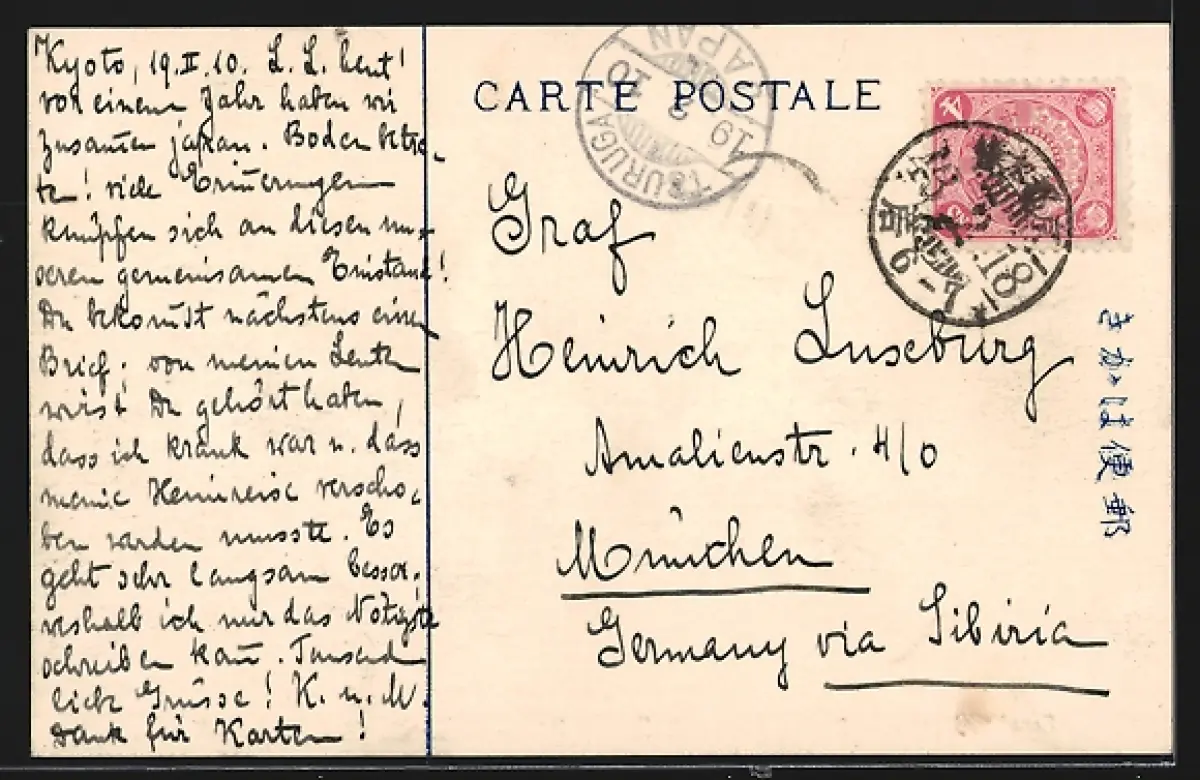 Kyoto, 19.II.10. L. L. heut!
vor einem Jahr haben wir
zusam̅en japan. Boden betre-
ten! viele Erin̅erungen
knüpfen sich an diesen un-
seren gemeinsamen Einstand!
Du bekom̅st nächstens einen
Brief; von meinen Leuten
wirst Du gehört haben,
dass ich krank war u. dass
meine Heimreise verscho-
ben werden musste. Es
geht sehr langsam besser.
weshalb ich nur das Nötigste
schreiben kan̅. Tausend
liebe Grüsse! K. u. M.
Dank für Karten!
CARTE POSTALE
TSURUGA
19 2 10
JAPAN
Graf
Heinrich Luxburg
Amalienstr. 4/0
München
Germany via Sibiria
きかは便郵